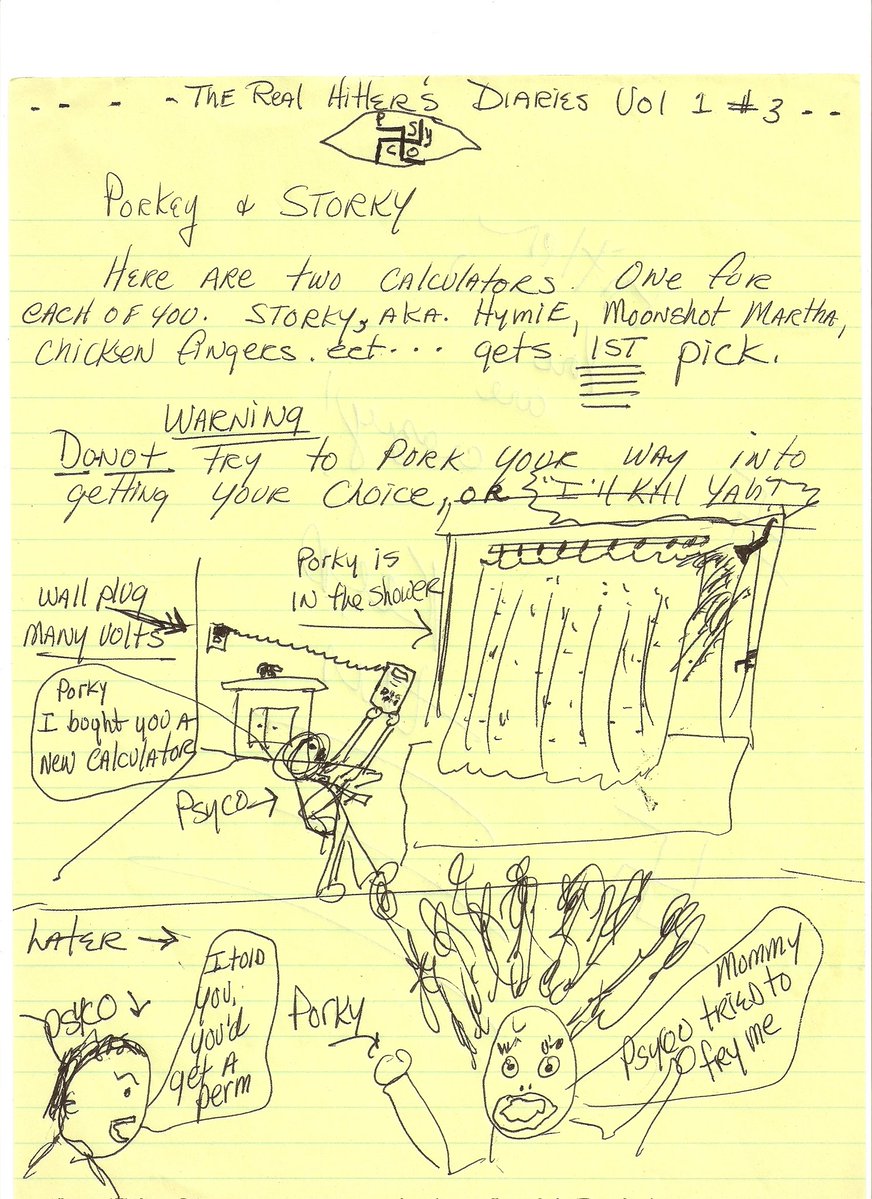 - - - - The Real Hitler's Diaries Vol 1 #3 - -
P S Y C O
Porkey & STORKY
HERE ARE two CALCULATORS. ONE for
EACH OF YOU. STORKY, AKA. HYMIE, MOONSHOT MARTHA,
Chicken fingers. ect... gets 1ST pick.
WARNING
DONOT try to PORK YOUR WAY into
getting YOUR Choice, OR "I'll Kill
Porky is
IN the SHOWER
WALL PLUG
MANY VOLTS
Porky
I boght you A
NEW CALCULATOR
PSYCO
LATER
PSYCO
I told
you,
you'd
get A
perm
Porky
Mommy
PSYCO tRIED to
fry me